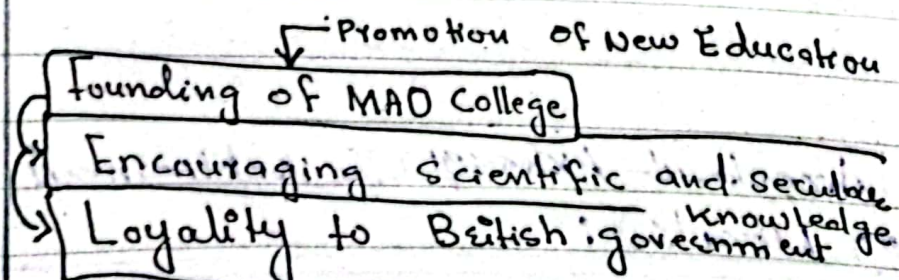 Promotion of New Education
Founding of MAO College
Encouraging Scientific and secular
knowledge
Loyality to British government